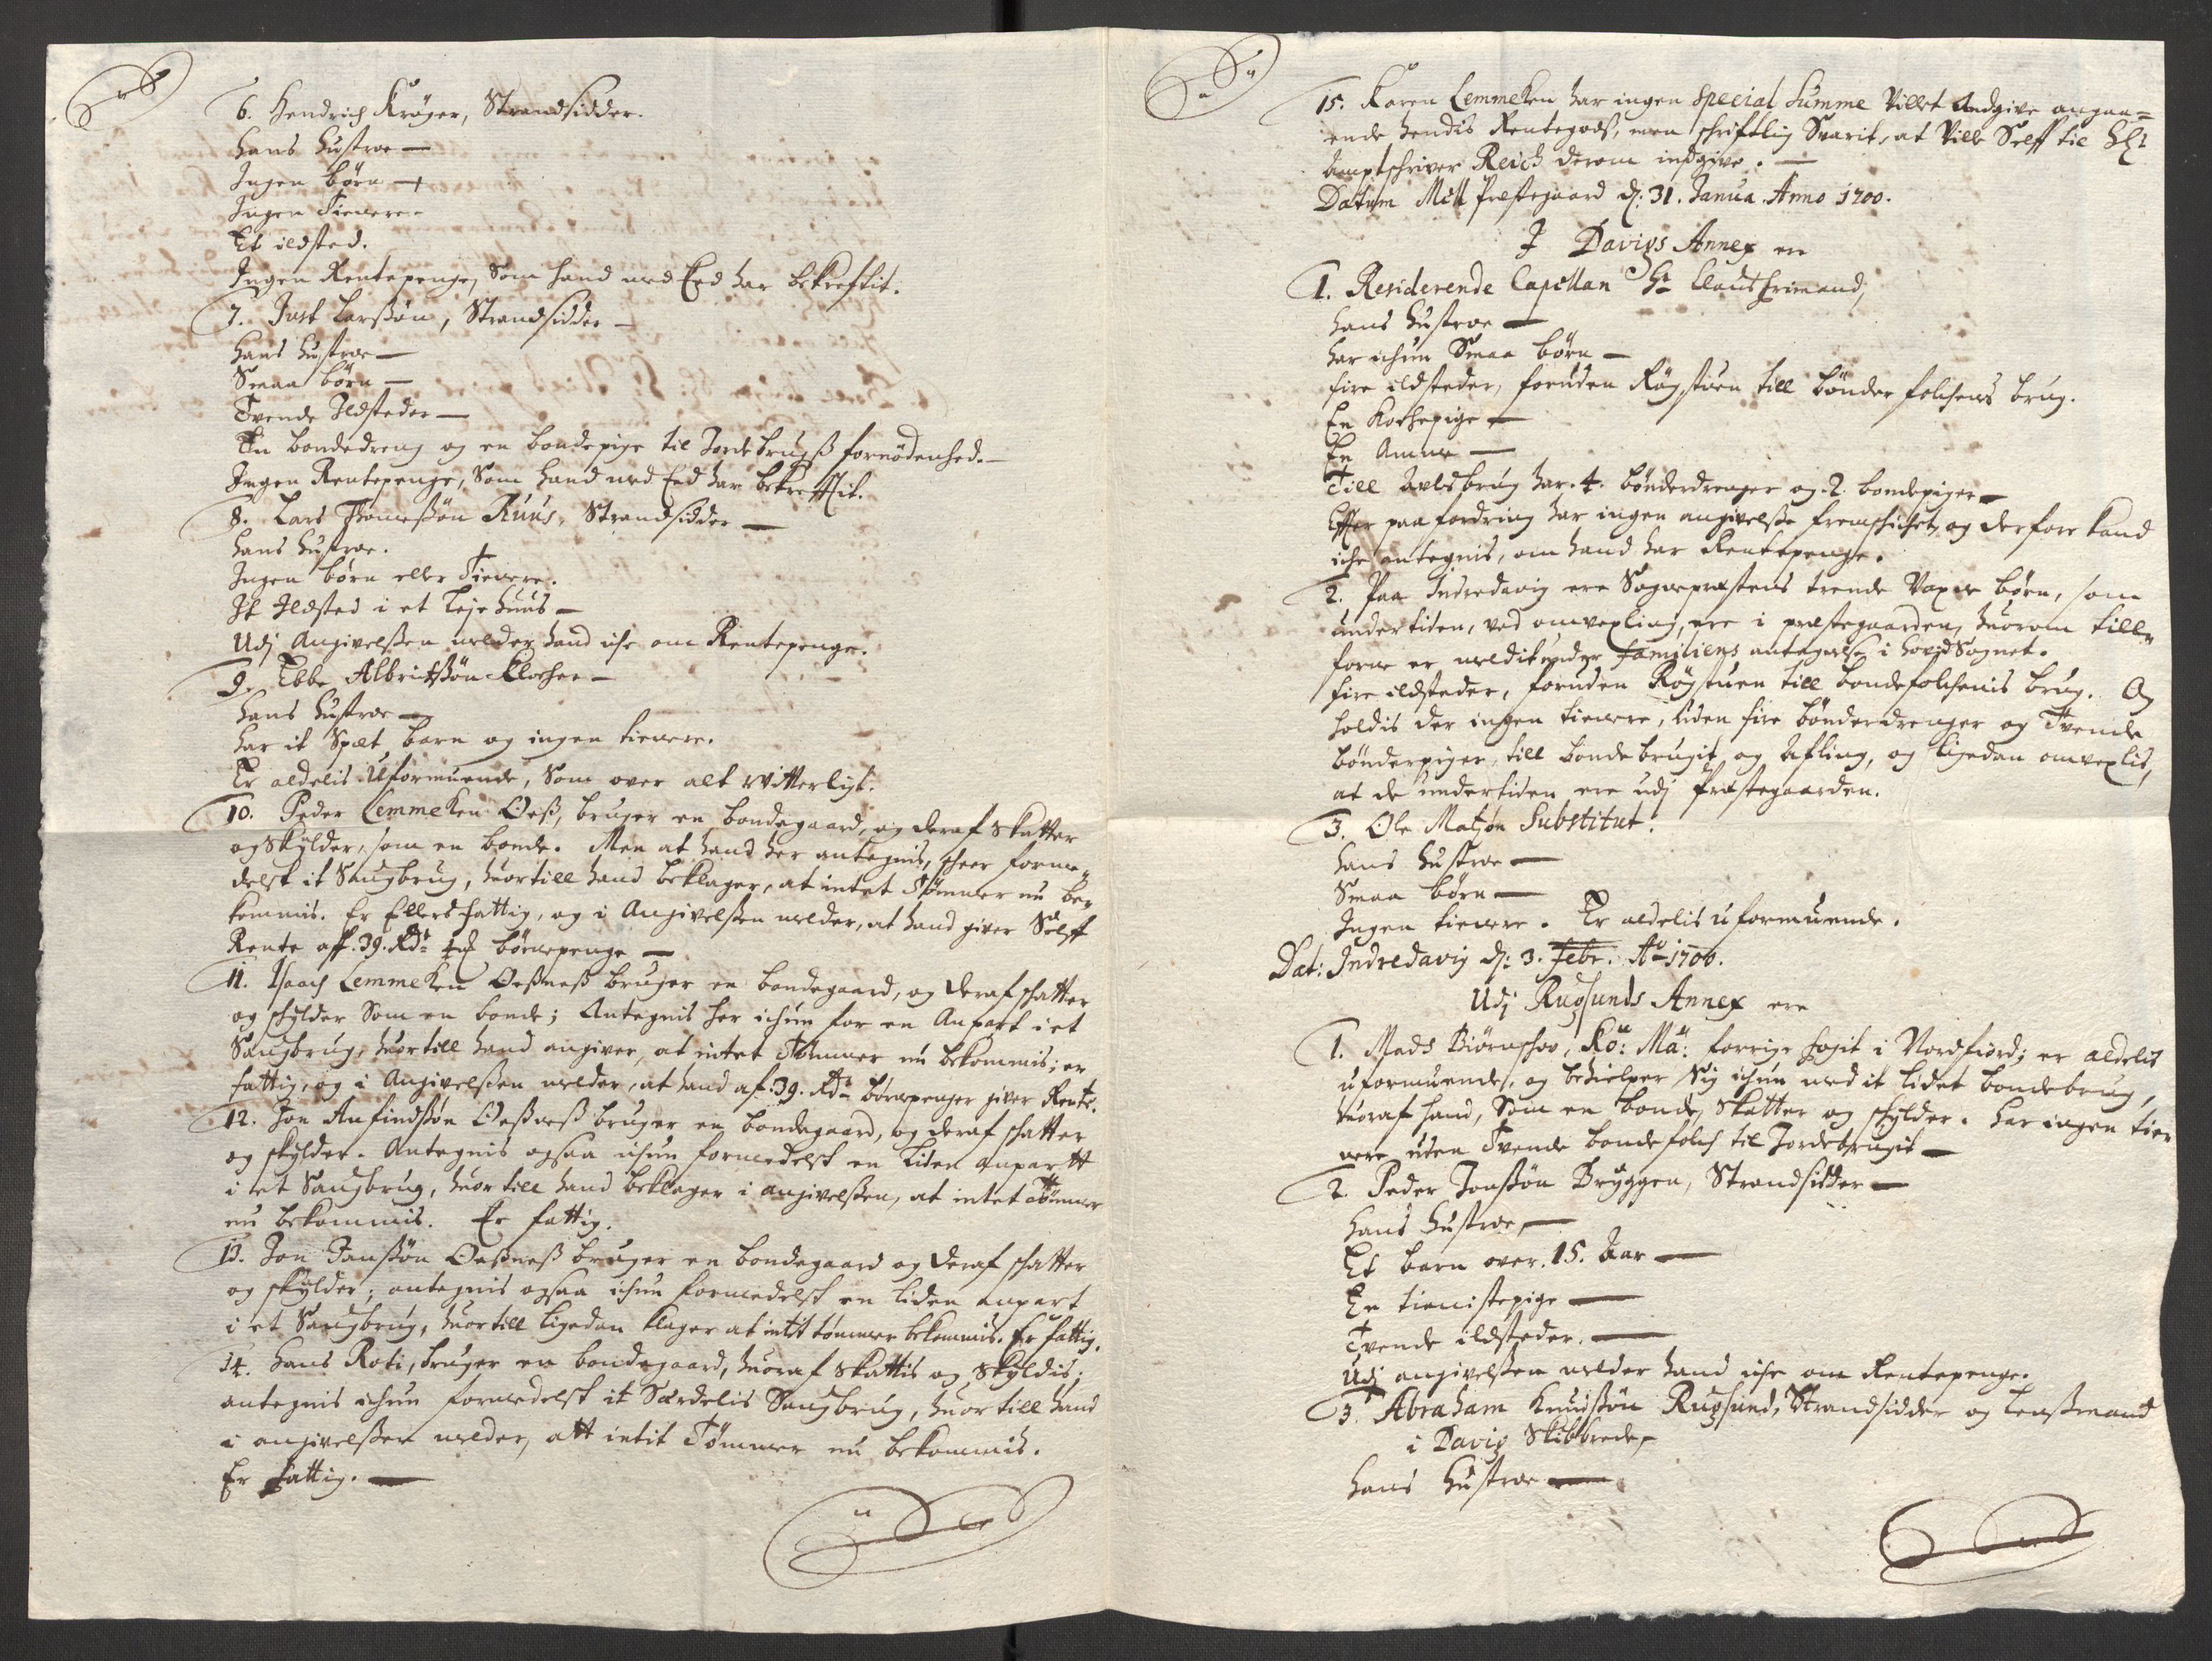 6. Hendrich Krøger, Strandsidder.
Hans Hustroe —
Ingen børn —
Ingen Tienere.
Et ildsted.
Ingen Rentepenge, Som hand med Eed har bekreftit.
7. Jost Larssøn, Strandsidder —
Hans Hustroe —
Smaa børn —
Tvende Ildsteder —
En bondedreng og en bondepige til Jordebrugs fornødenhed. —
Ingen Rentepenge, Som hand med Eed har bekrefftit.
8. Lars Thomessøn Ruus, Strandsidder —
Hans Hustroe.
Ingen børn eller Tienere.
It Ildsted i et Leje Huus —
Udj Angivelssen melder hand iche om Rentepenge.
9. Ebbe Albritssøn Klocher —
Hans Hustroe —
Har it Spæt barn og ingen tienere.
Er aldelis Uformuende, Som over alt witterligt.
10. Peder Lemmeken Oeß, bruger en bondegaard, og deraf Skatter
og Skylder, som en bonde. Men at hand her antegnis, scheer forme-
delst it Saugbrug, huortill hand beklager, at intet Tømmer nu be-
kommis. Er Ellers fattig, og i Angivelssen melder, at hand giver Selff
Rente aff. 39. Rdr børnepenge —
11. Isaach Lemmeken Oeßneß bruger en bondegaard, og deraf schatter
og schylder Som en bonde; Antegnis her ichun for en Anpart i et
Saugbrug, huortill hand angiver, at intet Tømmer nu bekommis; er
fattig, og i Angivelssen melder, at hand af. 39. Rdr børnepenger giver Rente.
12. Jon Anfindssøn Oeßneß bruger en bondegaard, og deraf schatter
og skylder. Antegnis ogsaa ichun formedelst en Liden anpartt
i et Saugbrug, huortill hand beklager i angivelssen, at intet Tømmer
nu bekommis. Er fattig.
13. Jon Janssøn Oeßneß bruger en bondegaard og deraf schatter
og skylder; antegnis ogsaa ichun formedelst en liden anpart
i et Saugbrug, huortill ligedan klager at intet tømmer bekommis. Er fattig.
14. Hans Roti, bruger en bondegaard, huoraf Skattis og Skyldis;
antegnis ichun formedelst it Særdelis Saugbrug, huortill hand
i angivelssen melder, att intit Tømmer nu bekommis.
Er fattig. —
15. Karen Lemmeken har ingen Special Summe Villet Andgive angaa-
ende hendis Rentegods, men schriftlig Svarit, at Ville Selff til Hr
Amptschriver Reich derom indgive. —
Datum Mell Præstegaard d: 31. Janua. Anno 1700.
I Davigs Annex ere
1. Residerende Capellan Hr Claus Frimand,
Hans Hustroe —
Har ichun Smaa børn —
fire ildsteder, foruden Røgstuen till bønderfolchens brug.
En Kochepige —
En Amme —
Till Avlsbrug har. 4. bønderdrenger og. 2. bondepiger —
Effter paafordring har ingen angivelsse fremschichet, og derfore kand
iche antegnis, om hand har Rentepenge.
2. Paa Indredavig ere Sognepræstens trende Voxne børn, som
undertiden, ved omvexling, ere i præstegaarden, huorom till-
forne er meldit under Familiens antegnelse i hovidSognet.
fire ildsteder, foruden Røgstuen till bondefolchenis brug. Og
holdis der ingen tienere, uden fire bønderdrenger og Tvende
bønderpiger, till bondebrugit og Afling, og ligedan omvexlis,
at de undertiden ere udj Præstegaarden.
3. Ole Matzøn Substitut.
Hans Hustroe —
Smaa børn —
Ingen tienere. Er aldelis uformuende.
Dat: Indredavig d: 3. Febr. Ao 1700.
Udj Rugsunds Annex ere
1. Mads Biørnschov, Kö: Mä: forrige fogit i Nordfiord; er aldelis
uformuende, og behielper Sig ichun med it lidet bondebrug,
huoraf hand, Som en bonde, Skatter og Schylder. Har ingen tie-
nere uden Tvende bondefolch til Jordebrugit —
2. Peder Jonssøn Bryggen, Strandsidder —
Hans Hustroe —
Et barn over. 15. Aar —
En tienistepige —
Tvende ildsteder. —
Udj angivelssen melder hand iche om Rentepenge.
3. Abraham Knudssøn Rugsund, Strandsidder og Lenssmand
i Davig Skibbrede,
Hans Hustroe —